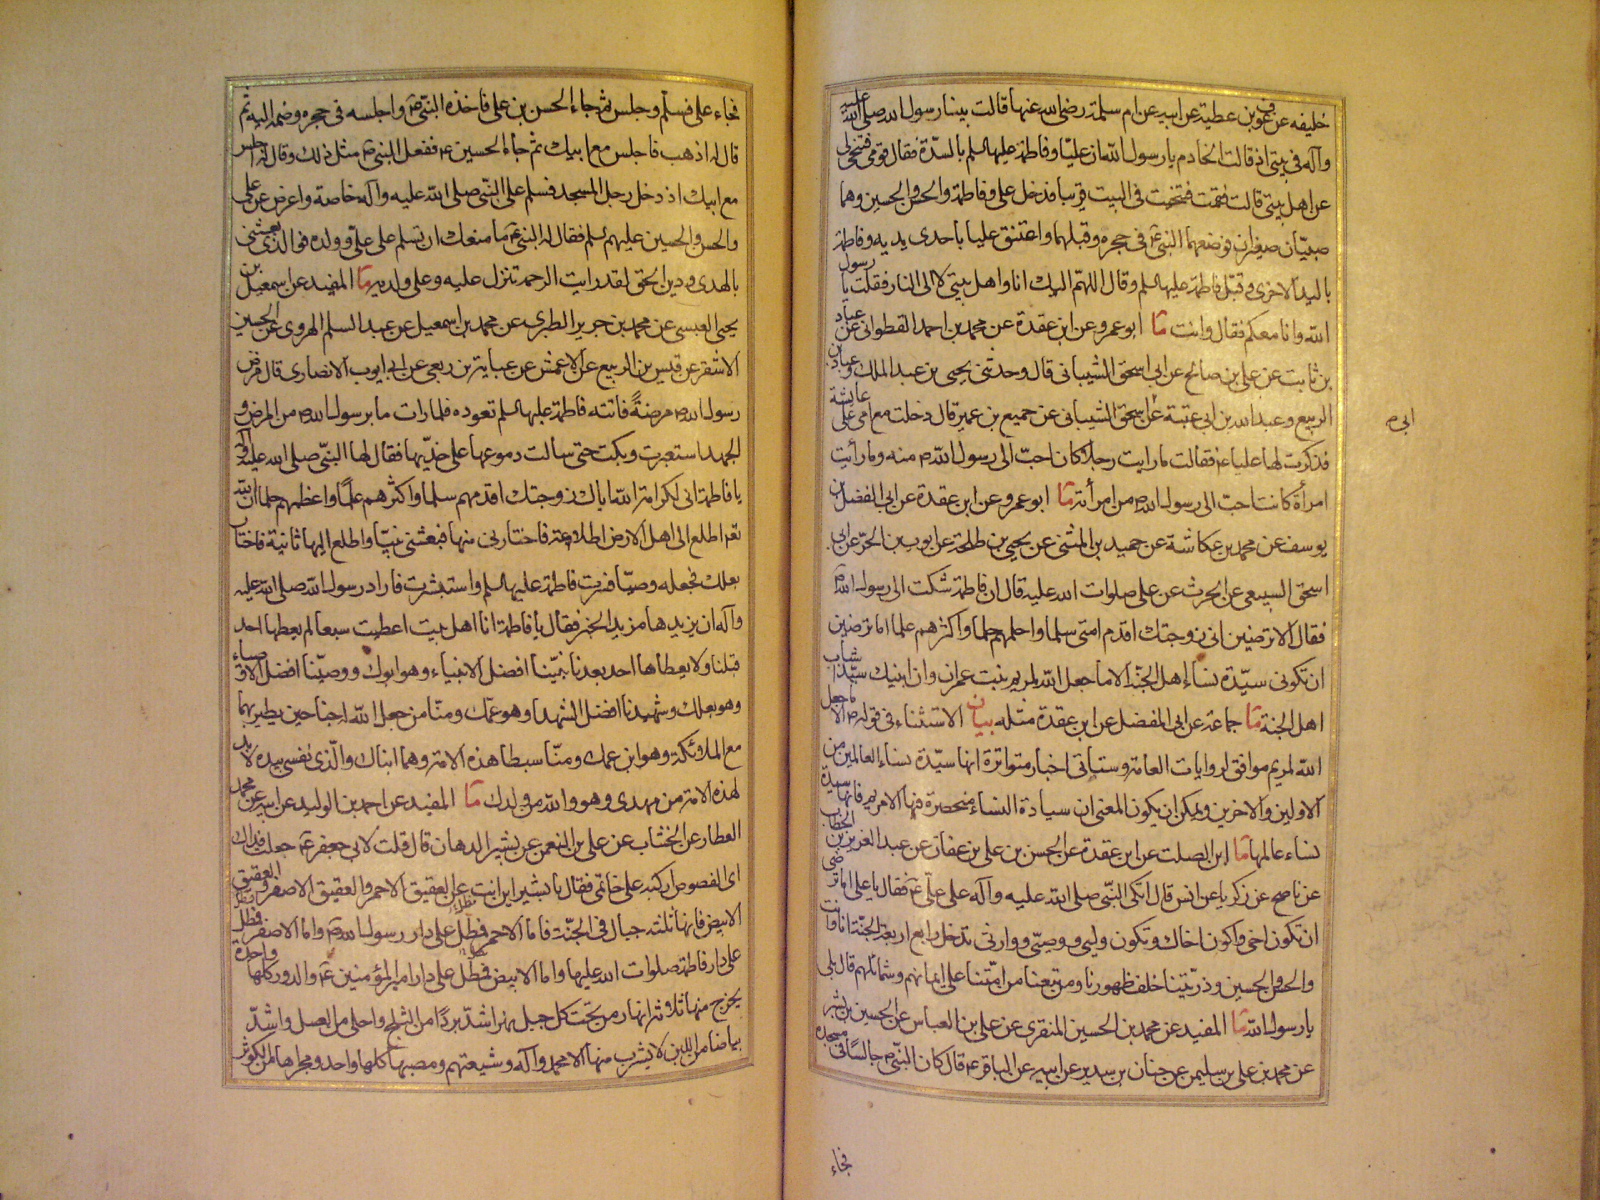 خليفه عن عوف بن عطية عن ابيه عن ام سلمة رضي الله عنها قالت بينا رسول الله صلى الله عليه
وآله في بيتي اذ قالت الخادم يا رسول الله ان عليا وفاطمة عليهما السلم بالسدة فقال قومي فتنحي لي
عن اهل بيتي قالت فقمت فتنحيت في البيت قريبا فدخل علي وفاطمة والحسن والحسين وهما
صبيان صغيران فوضعهما النبي ص في حجره وقبلهما واعتنق عليا باحدى يديه وفاطمة
باليد الاخرى وقبل فاطمة عليها السلم وقال اللهم اليك انا واهل بيتي لا الى النار فقلت يا رسول
الله وانا معكم فقال وانت ما ابو عمرو عن ابن عقدة عن محمد بن احمد القطواني عن عباد
بن ثابت عن علي بن صالح عن ابي اسحق الشيباني قال وحدثني يحيى بن عبد الملك وعباد بن
الربيع وعبد الله بن ابي عتبة عن اسحق الشيباني عن جميع بن عمير قال دخلت مع امي على عايشة
ابي ص
فذكرت لها عليا ع فقالت ما رايت رجلا كان احب الى رسول الله ص منه وما رأيت
امرأة كانت احب الى رسول الله ص من امرأته ما ابو عمرو عن ابن عقدة عن ابي الفضل بن
يوسف عن محمد بن عكاشة عن حميد بن المثنى عن يحيى بن طلحة عن ايوب بن الحر عن ابي
اسحق السبيعي عن الحرث عن علي صلوات الله عليه قال ان فاطمة شكت الى رسول الله ص
فقال الا ترضين اني زوجتك اقدم امتي سلما واحلمهم حلما واكثرهم علما اما ترضين
ان تكوني سيدة نساء اهل الجنة الا ما جعل الله لمريم بنت عمران وان ابنيك سيدا شباب
اهل الجنة ما جماعة عن ابي المفضل عن ابن عقدة مثله بيان الاستثناء في قوله ص الا ما جعل
الله لمريم موافق لروايات العامة وستأتي اخبار متواترة انها سيدة نساء العالمين من
الاولين والاخرين ويمكن ان يكون المعنى ان سيادة النساء منحصرة فيها الا مريم فانها سيدة
نساء عالمها ما ابن الصلت عن ابن عقدة عن الحسن بن علي بن عفان عن عبد العزيز بن الخطاب
عن ناصح عن زكريا عن انس قال اتكى النبي صلى الله عليه وآله على علي ع فقال يا علي اما ترضى
ان تكون اخي واكون اخاك وتكون وليي ووصيي ووارثي تدخل رابع اربعة الجنة انا وانت
والحسن والحسين وذريتنا خلف ظهورنا ومن تبعنا من امتنا على ايمانهم وشمائلهم قال بلى
يا رسول الله ما المفيد عن محمد بن الحسين المنقري عن علي بن العباس عن الحسين بن بشر
عن محمد بن علي بن سليمن عن حنان بن سدير عن ابيه عن الباقر ع قال كان النبي ص جالسا في مسجده
فجاء
فجاء علي فسلم وجلس ثم جاء الحسن بن علي فاخذه النبي ص واجلسه في حجره وضمه اليه ثم
قال له اذهب فاجلس مع ابيك ثم جاء الحسين ع ففعل النبي ص مثل ذلك وقال له اجلس
مع ابيك اذ دخل رجل المسجد فسلم على النبي صلى الله عليه وآله خاصة واعرض عن علي
والحسن والحسين عليهم السلم فقال له النبي ص ما منعك ان تسلم على علي وولده فوالذي بعثني
بالهدى ودين الحق لقد رايت الرحمة تنزل عليه وعلى ولديه ما المفيد عن اسمعيل بن
يحيى العبسي عن محمد بن جرير الطبري عن محمد بن اسمعيل عن عبد السلم الهروي عن الحسين
الاشقر عن قيس بن الربيع عن الاعمش عن عباية بن ربعي عن ابي ايوب الانصاري قال مرض
رسول الله ص مرضة فاتته فاطمة عليها السلم تعوده فلما رات ما برسول الله ص من المرض و
الجهد استعبرت وبكت حتى سالت دموعها على خديها فقال لها النبي صلى الله عليه وآله
يا فاطمة اني لكرامة الله اياك زوجتك اقدمهم سلما واكثرهم علما واعظمهم حلما ان الله
تعالى اطلع الى اهل الارض اطلاعة فاختارني منها فبعثني نبيا واطلع اليها ثانية فاختار
بعلك فجعله وصيا فسرت فاطمة عليها السلم واستبشرت فاراد رسول الله صلى الله عليه
وآله ان يزيدها مزيد الخير فقال يا فاطمة انا اهل بيت اعطيت سبعا لم يعطها احد
قبلنا ولا يعطاها احد بعدنا نبينا افضل الانبياء وهو ابوك ووصينا افضل الاوصياء
وهو بعلك وشهيدنا افضل الشهدا وهو عمك ومنا من جعل الله له جناحين يطير بهما
مع الملائكة وهو ابن عمك ومنا سبطا هذه الامة وهما ابناك والذي نفسي بيده لا بد
لهذه الامة من مهدي وهو والله من ولدك ما المفيد عن احمد بن الوليد عن ابيه عن محمد
العطار عن الخشاب عن علي بن النعمن عن بشير الدهان قال قلت لابي جعفر ع جعلت فداك
اي الفصوص اركبه على خاتمي فقال يا بشير اين انت عن العقيق الاحمر والعقيق الاصفر والعقيق
الابيض فانها ثلثة جبال في الجنة فاما الاحمر فمطل على دار رسول الله ص واما الاصفر فمطل
على دار فاطمة صلوات الله عليها واما الابيض فمطل على دار امير المؤمنين ع والدور كلها واحدة
يخرج منها ثلاثة انهار من تحت كل جبل نهر اشد بردا من الثلج واحلى من العسل واشد
بياضا من اللبن لا يشرب منها الا محمد وآله وشيعتهم ومصبها كلها واحد ومجراها من الكوثر